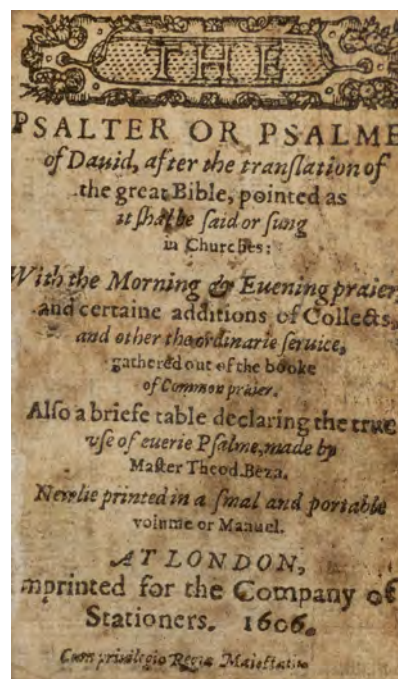 THE
PSALTER OR PSALME
of Dauid, after the tranſlation of
the great Bible, pointed as
it ſhal be ſaid or ſung
in Churches:
With the Morning & Euening praier,
and certaine additions of Collects,
and other the ordinarie ſeruice,
gathered out of the booke
of Common praier.
Alſo a briefe table declaring the true
vſe of euerie Pſalme, made by
Maſter Theod. Beza.
Newlie printed in a ſmal and portable
volume or Manuel.
AT LONDON,
mprinted for the Company of
Stationers. 1606.
Cum priuilegio Regiæ Maieſtatis